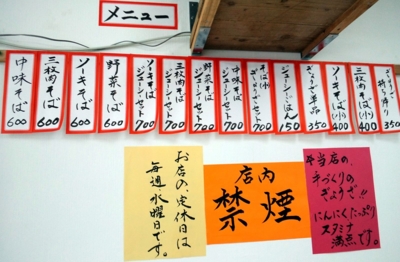 メニュー
中味そば 600
三枚肉そば 600
ソーキそば 600
野菜そば 600
ソーキそば ジューシーセット 700
三枚肉そば ジューシーセット 700
野菜そば ジューシーセット 700
中味そば ジューシーセット 700
そば(小) ぎょうざ ジューシーセット 700
ジューシーごはん 150
ぎょうざ単品 350
ソーキそば(小) 400
三枚肉そば(小) 400
ぎょうざ 持ち帰り 350
お店の、定休日は
毎週、水曜日です。
店内
禁煙
当店の、
手づくりの
ぎょうざ!!
にんにくたっぷり
スタミナ
満点です。